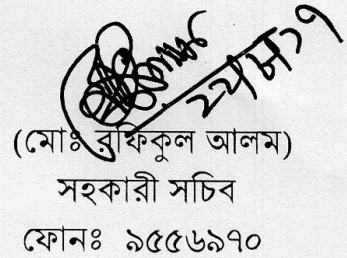 (মোঃ রফিকুল আলম)
সহকারী সচিব
ফোনঃ ৯৫৫৬৯৭০